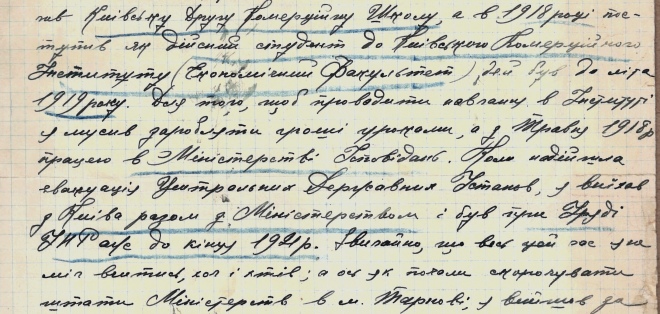 чив Київську Другу Комерційну Школу, а в 1918 році пос-
тупив як дійсний студент до Київського Комерційного
Інституту (Економічний Факультет), де й був до літа
1919 року. Для того, щоб проводити навчання в Інституті
я мусив заробляти гроші уроками, а з травня 1918 р.
працею в Міністерстві Ісповідань. Коли надійшла
евакуація Центральних Державних Установ, я виїхав
з Київа разом з Міністерством і був при Уряді
УНР аж до кінця 1921 р. Звичайно, що весь цей час я не
міг вчитись, хоч і хтів; а ось як почали скорочувати
штати Міністерств в м. Тарнові, я вийшов за